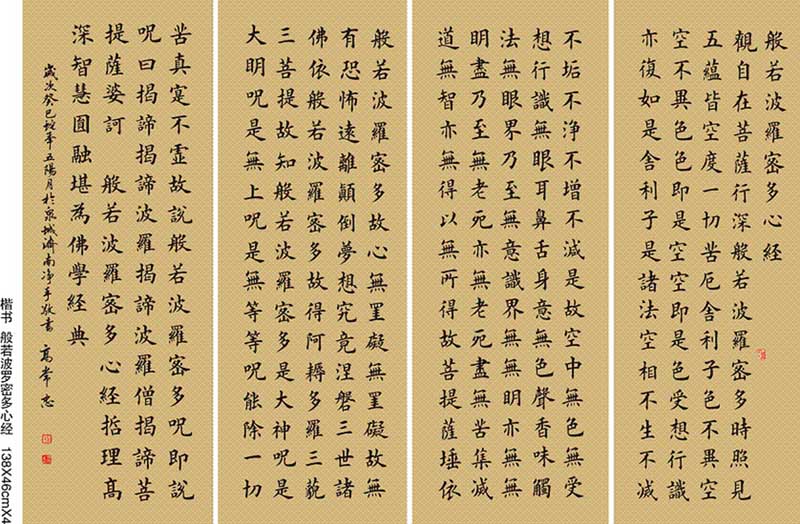 般若波羅密多心經
觀自在菩薩行深般若波羅密多時照見
五蘊皆空度一切苦厄舍利子色不異空
空不異色色即是空空即是色受想行識
亦復如是舍利子是諸法空相不生不滅
不垢不淨不增不減是故空中無色無受
想行識無眼耳鼻舌身意無色聲香味觸
法無眼界乃至無意識界無無明亦無無
明盡乃至無老死亦無老死盡無苦集滅
道無智亦無得以無所得故菩提薩埵依
般若波羅密多故心無罣礙無罣礙故無
有恐怖遠離顛倒夢想究竟涅磐三世諸
佛依般若波羅密多故得阿耨多羅三藐
三菩提故知般若波羅密多是大神呪是
大明呪是無上呪是無等等呪能除一切
苦真寔不虛故說般若波羅密多呪即說
呪曰揭諦揭諦波羅揭諦波羅僧揭諦菩
提薩婆訶 般若波羅密多心經哲理高
深智慧圓融堪為佛學經典
歲次癸巳蛇年五陽月於泉城濟南淨手敬書 高常志
楷书 般若波罗密多心经 138X46cmX4